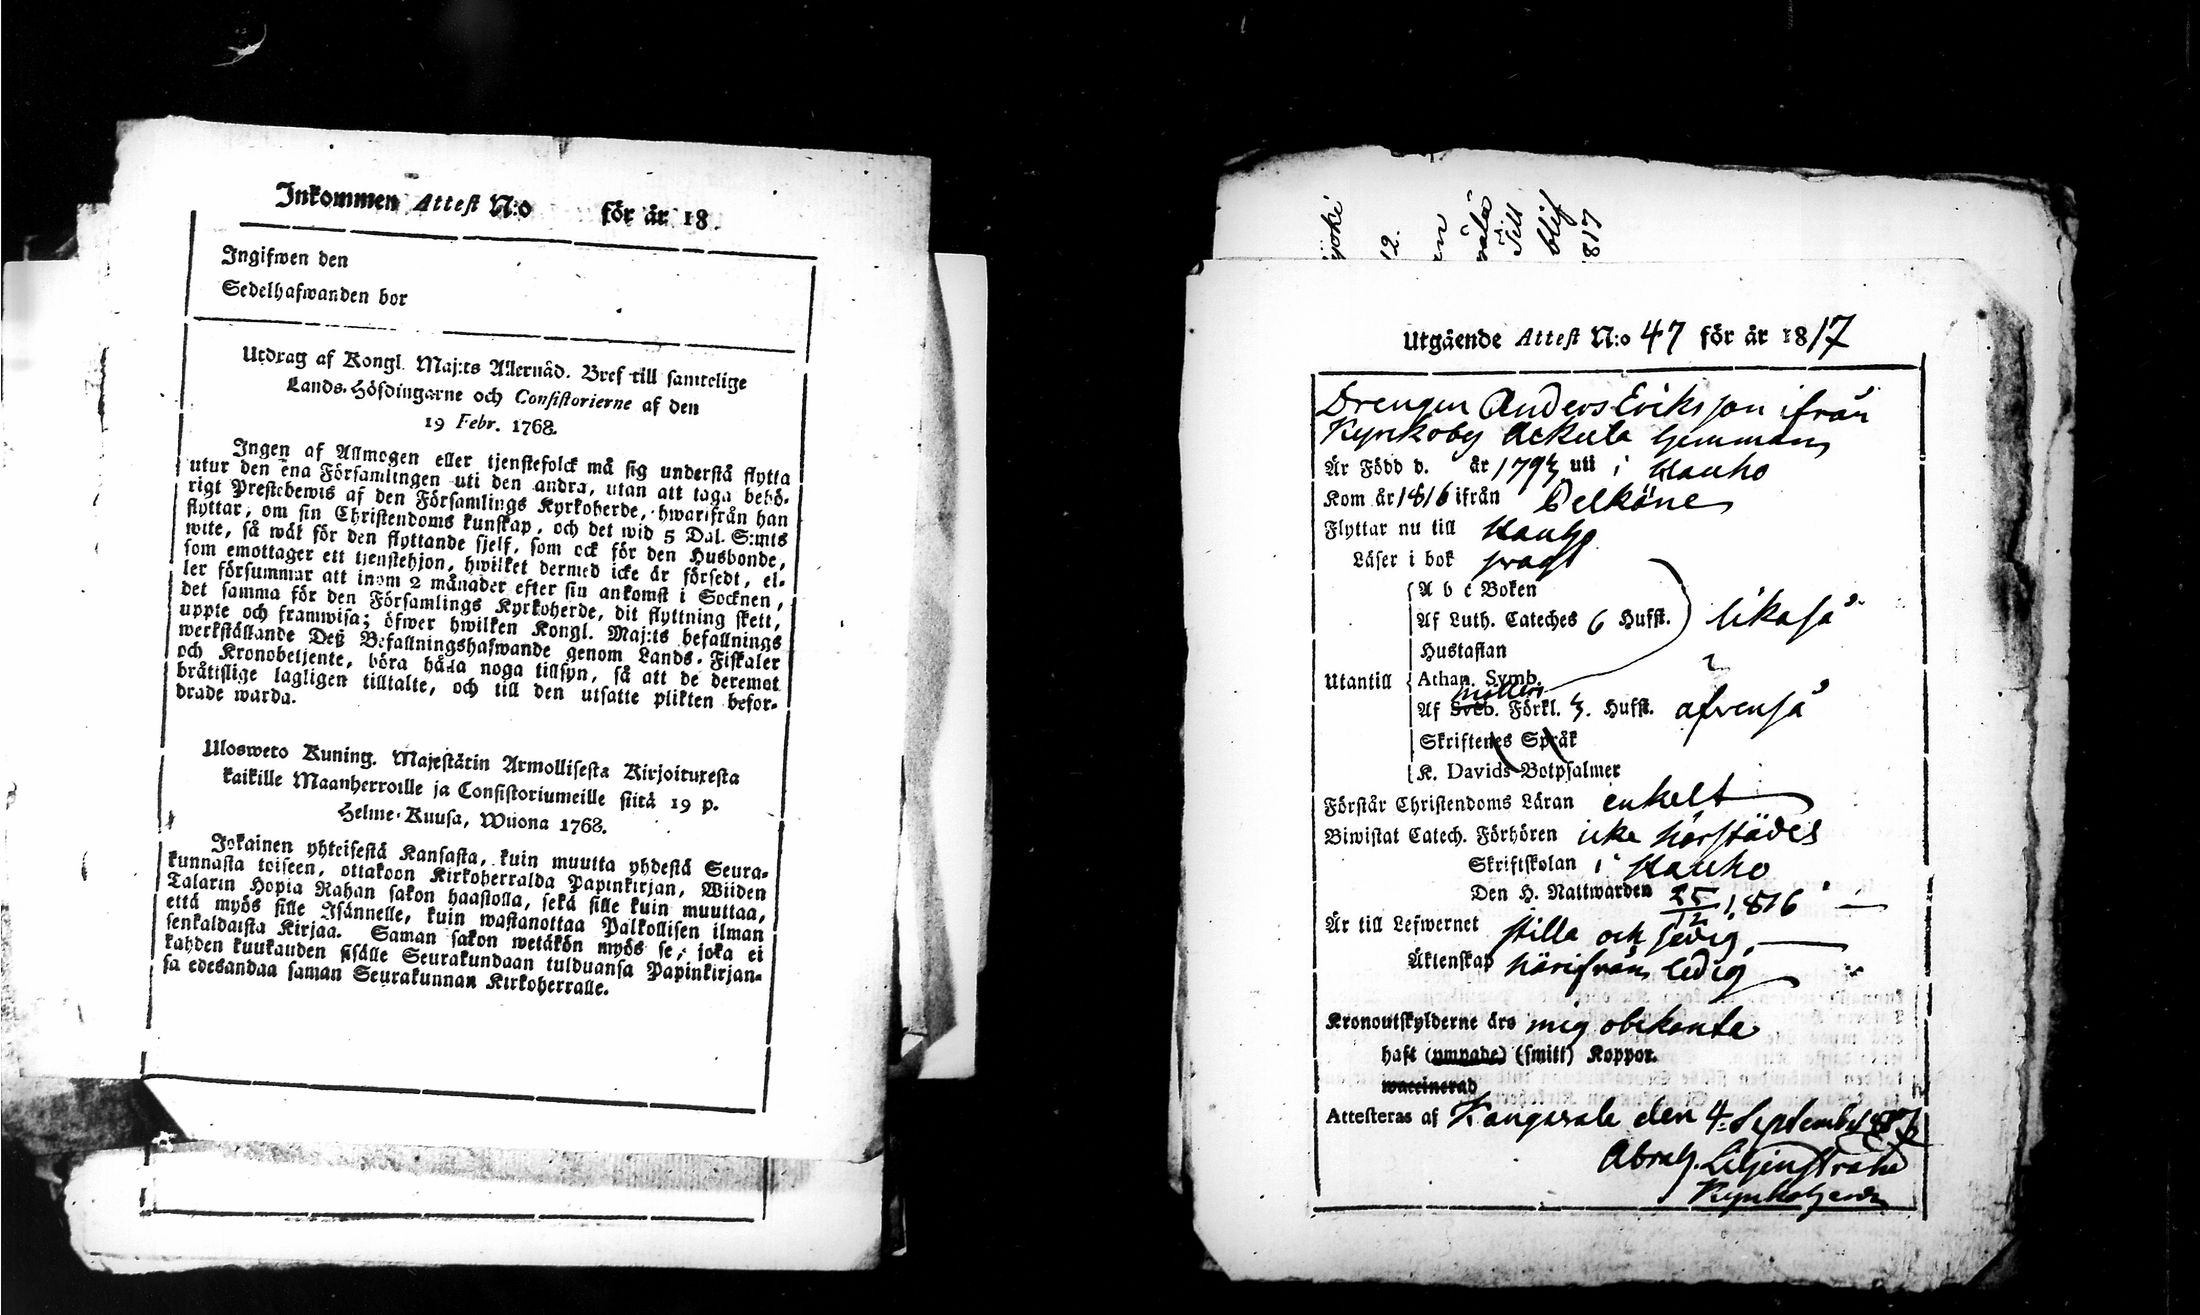 Inkommen Attest N:o för år 18.
Ingifwen den
Sedelhafwanden bor
Utdrag af Kongl. Maj:ts Allernåd. Bref till samtelige
Lands-Höfdingarne och Consistorierne af den
19 Febr. 1768.
Ingen af Allmogen eller tjenstefolck må sig understå flytta
utur den ena Församlingen uti den andra, utan att taga behö-
rigt Prestebewis af den Församlings Kyrkoherde, hwarifrån han
flyttar, om sin Christendoms kunskap, och det wid 5 Dal. S:mts
wite, så wäl för den flyttande sjelf, som ock för den Husbonde,
som emottager ett tjenstehjon, hwilket dermed icke är försedt, el-
ler försummar att inom 2 månader efter sin ankomst i Socknen,
det samma för den Församlings Kyrkoherde, dit flyttning skett,
uppte och framwisa; öfwer hwilken Kongl. Maj:ts befallnings
werkställande Deß Befallningshafwande genom Lands-Fiskaler
och Kronobetjente, böra hålla noga tillsyn, så att de deremot
bråtislige lagligen tilltalte, och till den utsatte plikten befor-
drade warda.
Ulosweto Kuning. Majestätin Armollisesta Kirjoituxesta
kaikille Maanherroille ja Consistoriumeille siitä 19 p.
Helme-Kuusa, Wuona 1768.
Jokainen yhteisestä Kansasta, kuin muutta yhdestä Seura-
kunnasta toiseen, ottakoon Kirkoherralda Papinkirjan, Wiiden
Talarin Hopia Rahan sakon haastolla, sekä sille kuin muuttaa,
että myös sille Isännelle, kuin wastanottaa Palkollisen ilman
senkaldaista Kirjaa. Saman sakon wetäkön myös se, joka ei
kahden kuukauden sisälle Seurakundaan tulduansa Papinkirjan-
sa edesandaa saman Seurakunnan Kirkoherralle.
joki
12.
Till
blif
817
Utgående Attest N:o 47 för år 1817
Drengen Anders Eriksson ifrån
Kyrkoby Ackula hemman
Är Född d. år 1793 uti i Hauho
Kom år 1816 ifrån Pelkäne
Flyttar nu till Hauho
Läser i bok swagt
A b c Boken
Af Luth. Cateches 6 Hufst. likaså
Hustaflan
Utantill Athan. Symb.
möllers
Af Sveb. Förkl. 3. Hufst. afvenså
Skriftenes Språk
K. Davids Botpsalmer
Förstår Christendoms Läran enkelt
Biwistat Catech. Förhören icke härstädes
Skriftskolan i Hauho
Den H. Nattwarden 25/12 1816
Är till Lefwernet stilla och sedig,
Äktenskap härifrån ledig
Kronoutskylderne äro mig obekante
haft (ympade) (smitt) Koppor.
waccinerad
Attesteras af Kangasala den 4. September 1817
Abrah. Liljenstrand
Kyrkoherde